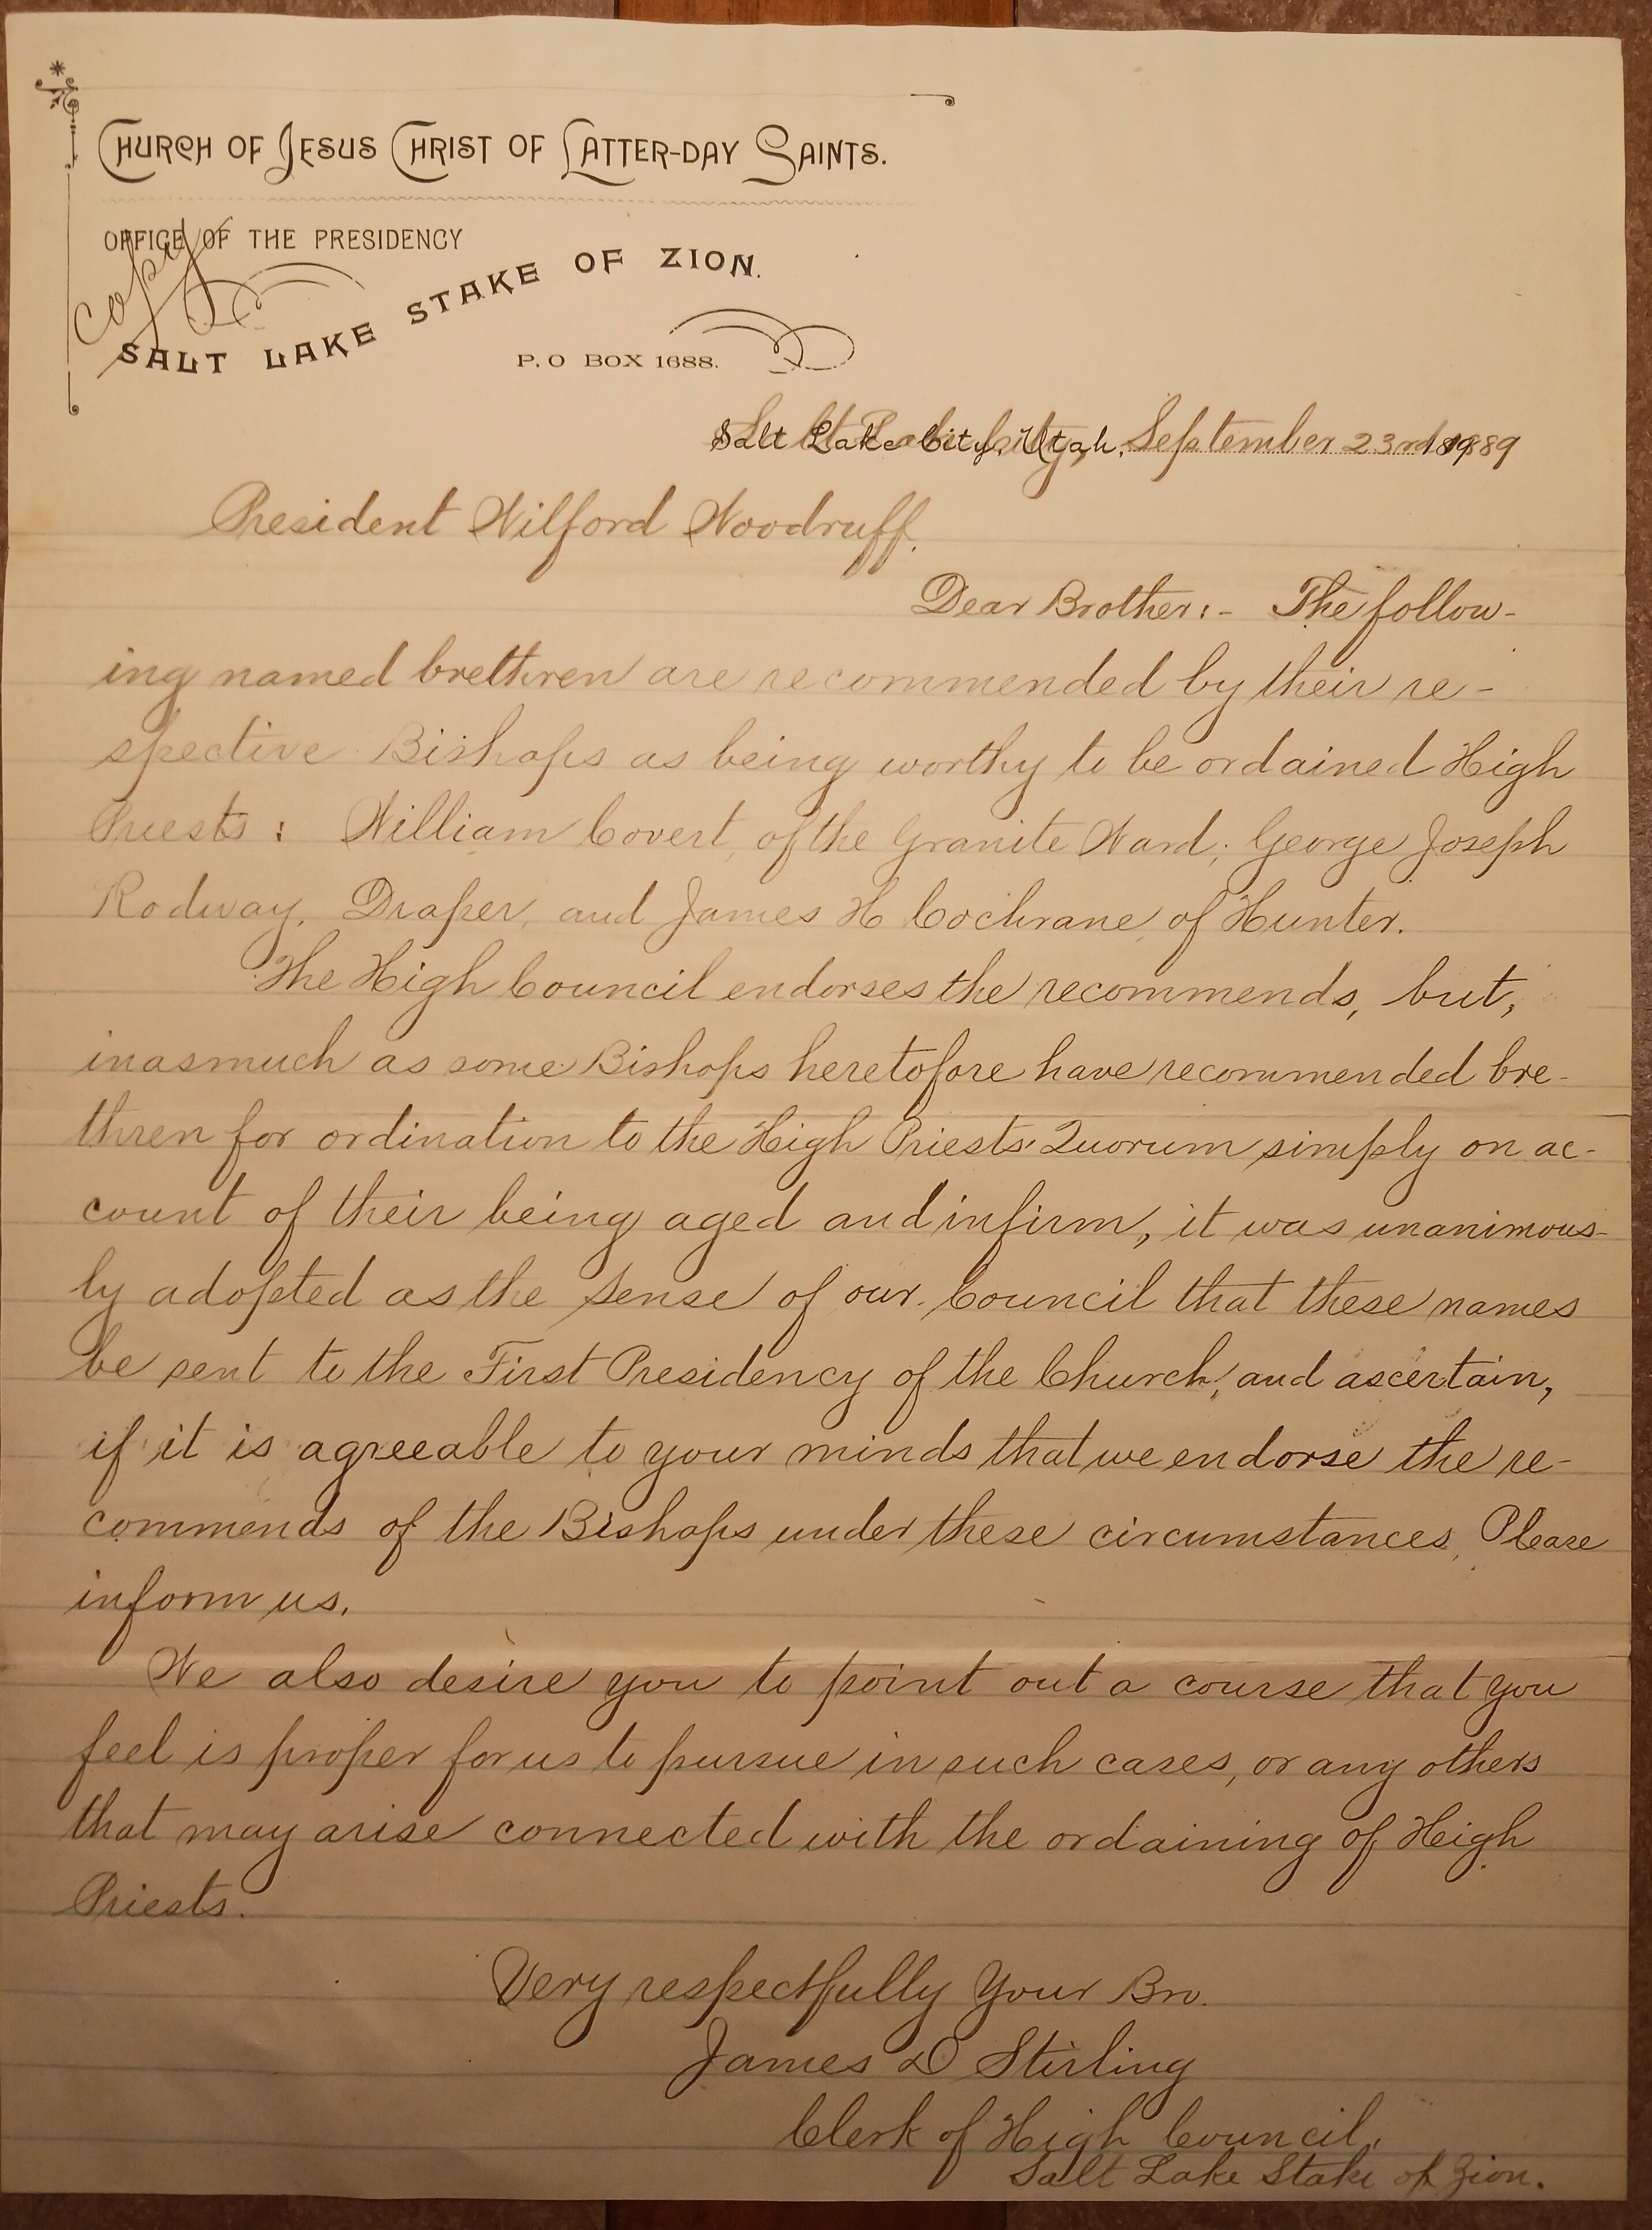 CHURCH OF JESUS CHRIST OF LATTER-DAY SAINTS.
OFFICE OF THE PRESIDENCY
Copy
SALT LAKE STAKE OF ZION.
P. O BOX 1688.
Salt Lake City, Utah, September 23rd 1889
President Wilford Woodruff.
Dear Brother:- The follow-
ing named brethren are recommended by their re-
spective Bishops as being worthy to be ordained High
Priests: William Covert, of the Granite Ward; George Joseph
Rodway, Draper, and James H Cochrane, of Hunter.
The High Council endorses the recommends, but,
inasmuch as some Bishops heretofore have recommended bre-
thren for ordination to the High Priests' Quorum simply on ac-
count of their being aged and infirm, it was unanimous-
ly adopted as the sense of our Council that these names
be sent to the First Presidency of the Church, and ascertain,
if it is agreeable to your minds that we endorse the re-
commends of the Bishops under these circumstances. Please
inform us.
We also desire you to point out a course that you
feel is proper for us to pursue in such cases, or any others
that may arise connected with the ordaining of High
Priests.
Very respectfully Your Bro.
James D Stirling
Clerk of High Council,
Salt Lake Stake of Zion.